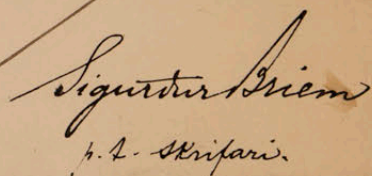 Sigurður Briem
p. t. skrifari.